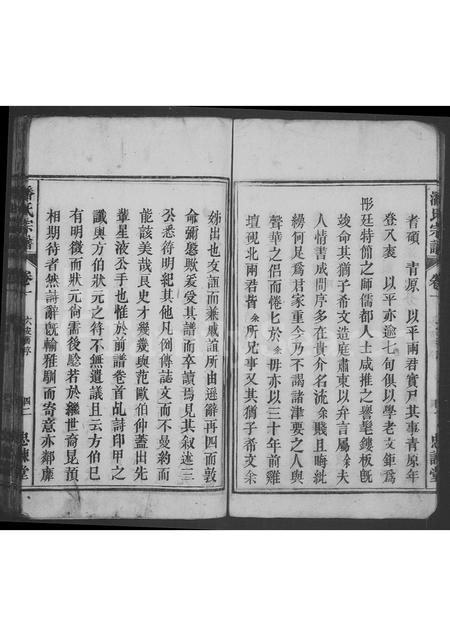 潘氏宗譜
卷一
思諫堂
耆碩 青原 以平兩君實尸其事青原年
登八袠 以平亦逾七旬俱以學老文鉅為
彤廷特簡之師儒都人士咸推之譽髦鏤板旣
竣命其猶子希文造庭肅東以弁言屬余夫
人情書成問序多在貴介名流余賤且晦紕
繆何足為君家重今乃不謁諸津要之人與
聲華之侶而惓匕於余毋亦以三十年前雞
壇視北兩君皆余所兄事又其猶子希文余
姊出也交誼而兼戚誼所由遜辭再四而敦
命彌慇歟爰受其譜而卒讀焉見其叙述三
公悉符明紀其他凡倒傳誌文而不曼約而
能該美哉良史才幾幾與范歐伯仲蓋出先
輩星液公手也惟於前譜卷首乩詩印甲之
讖與方伯狀元之符不無遺議且云方伯巳
有明徵而狀元尙需後騐若於繼世裔昆嵿
相期待者然詩辭旣輸雅馴而寄意亦鄰靡
潘氏宗譜
卷一
四二
思諫堂